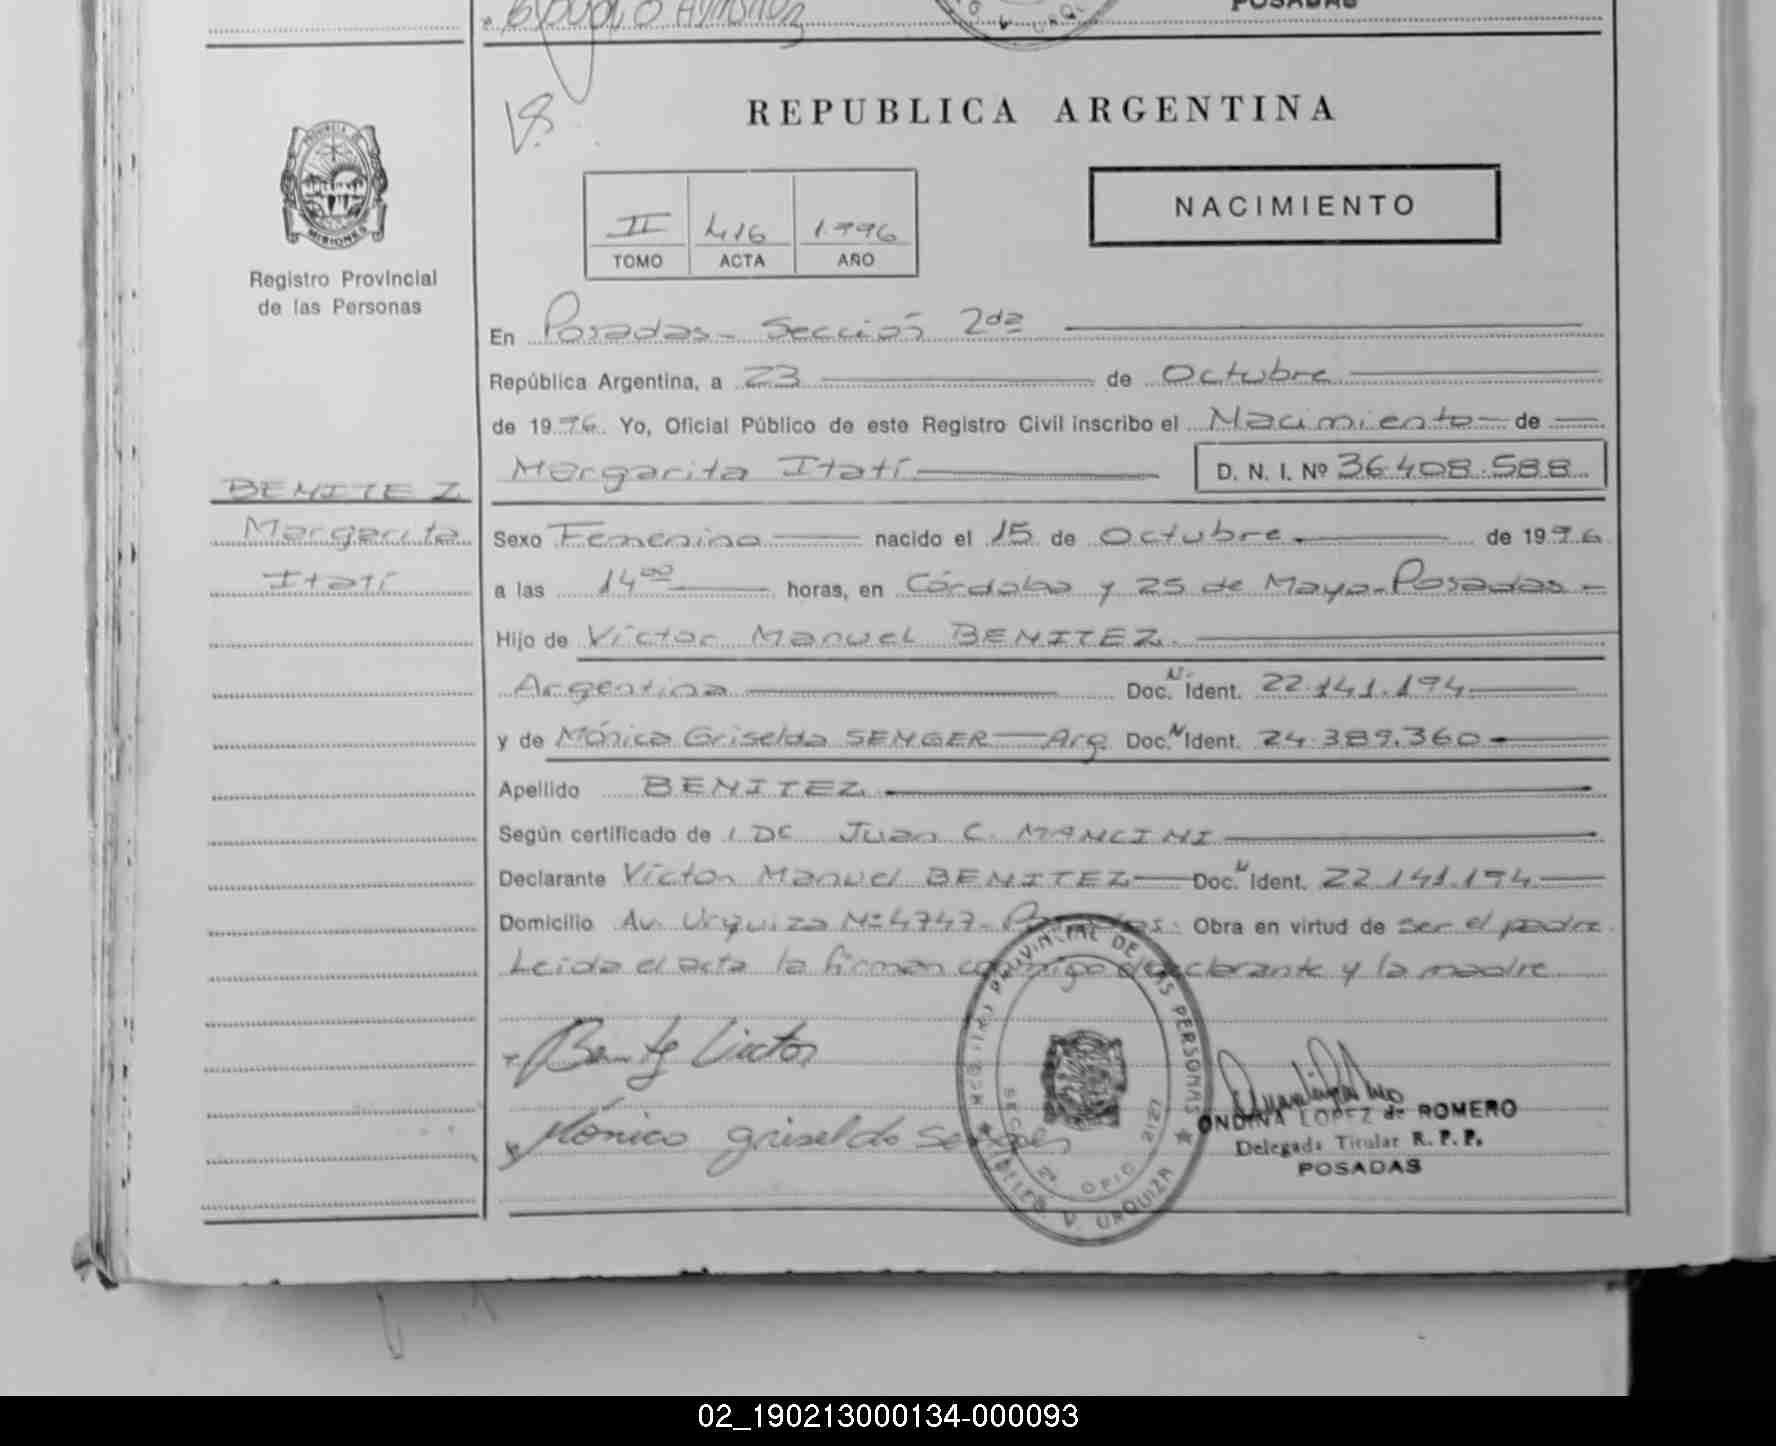 POSADAS
REPUBLICA ARGENTINA
NACIMIENTO
II 416 1.996
TOMO ACTA AÑO
PROVINCIA DE
MISIONES
Registro Provincial
de las Personas
En Posadas - Sección 2da
República Argentina, a 23 de Octubre
de 1996. Yo, Oficial Público de este Registro Civil inscribo el Nacimiento de
Margarita Itatí D. N. I. Nº 36.408.588
BENITEZ
Margarita
Itatí
Sexo Femenino nacido el 15 de Octubre de 1996
a las 14 00 horas, en Córdoba y 25 de Mayo - Posadas -
Hijo de Víctor Manuel BENITEZ.
Argentina Doc. N. Ident. 22.141.194
y de Mónica Griselda SENGER Arg. Doc. N Ident. 24.389.360
Apellido BENITEZ.
Según certificado de DC Juan C. MANCINI
Declarante Víctor Manuel BENITEZ Doc. N Ident. 22.141.194
Domicilio Av. Urquiza Nº 4747 - Posadas. Obra en virtud de ser el padre.
Leida el acta la firman conmigo declarante y la madre
Benitez Victor
Mónica griselda
REGISTRO PROVINCIAL DE LAS PERSONAS
DELEG. V. URQUIZA
OFIC 2127
ONDINA LOPEZ de ROMERO
Delegada Titular R. P. P.
POSADAS
02_190213000134-000093